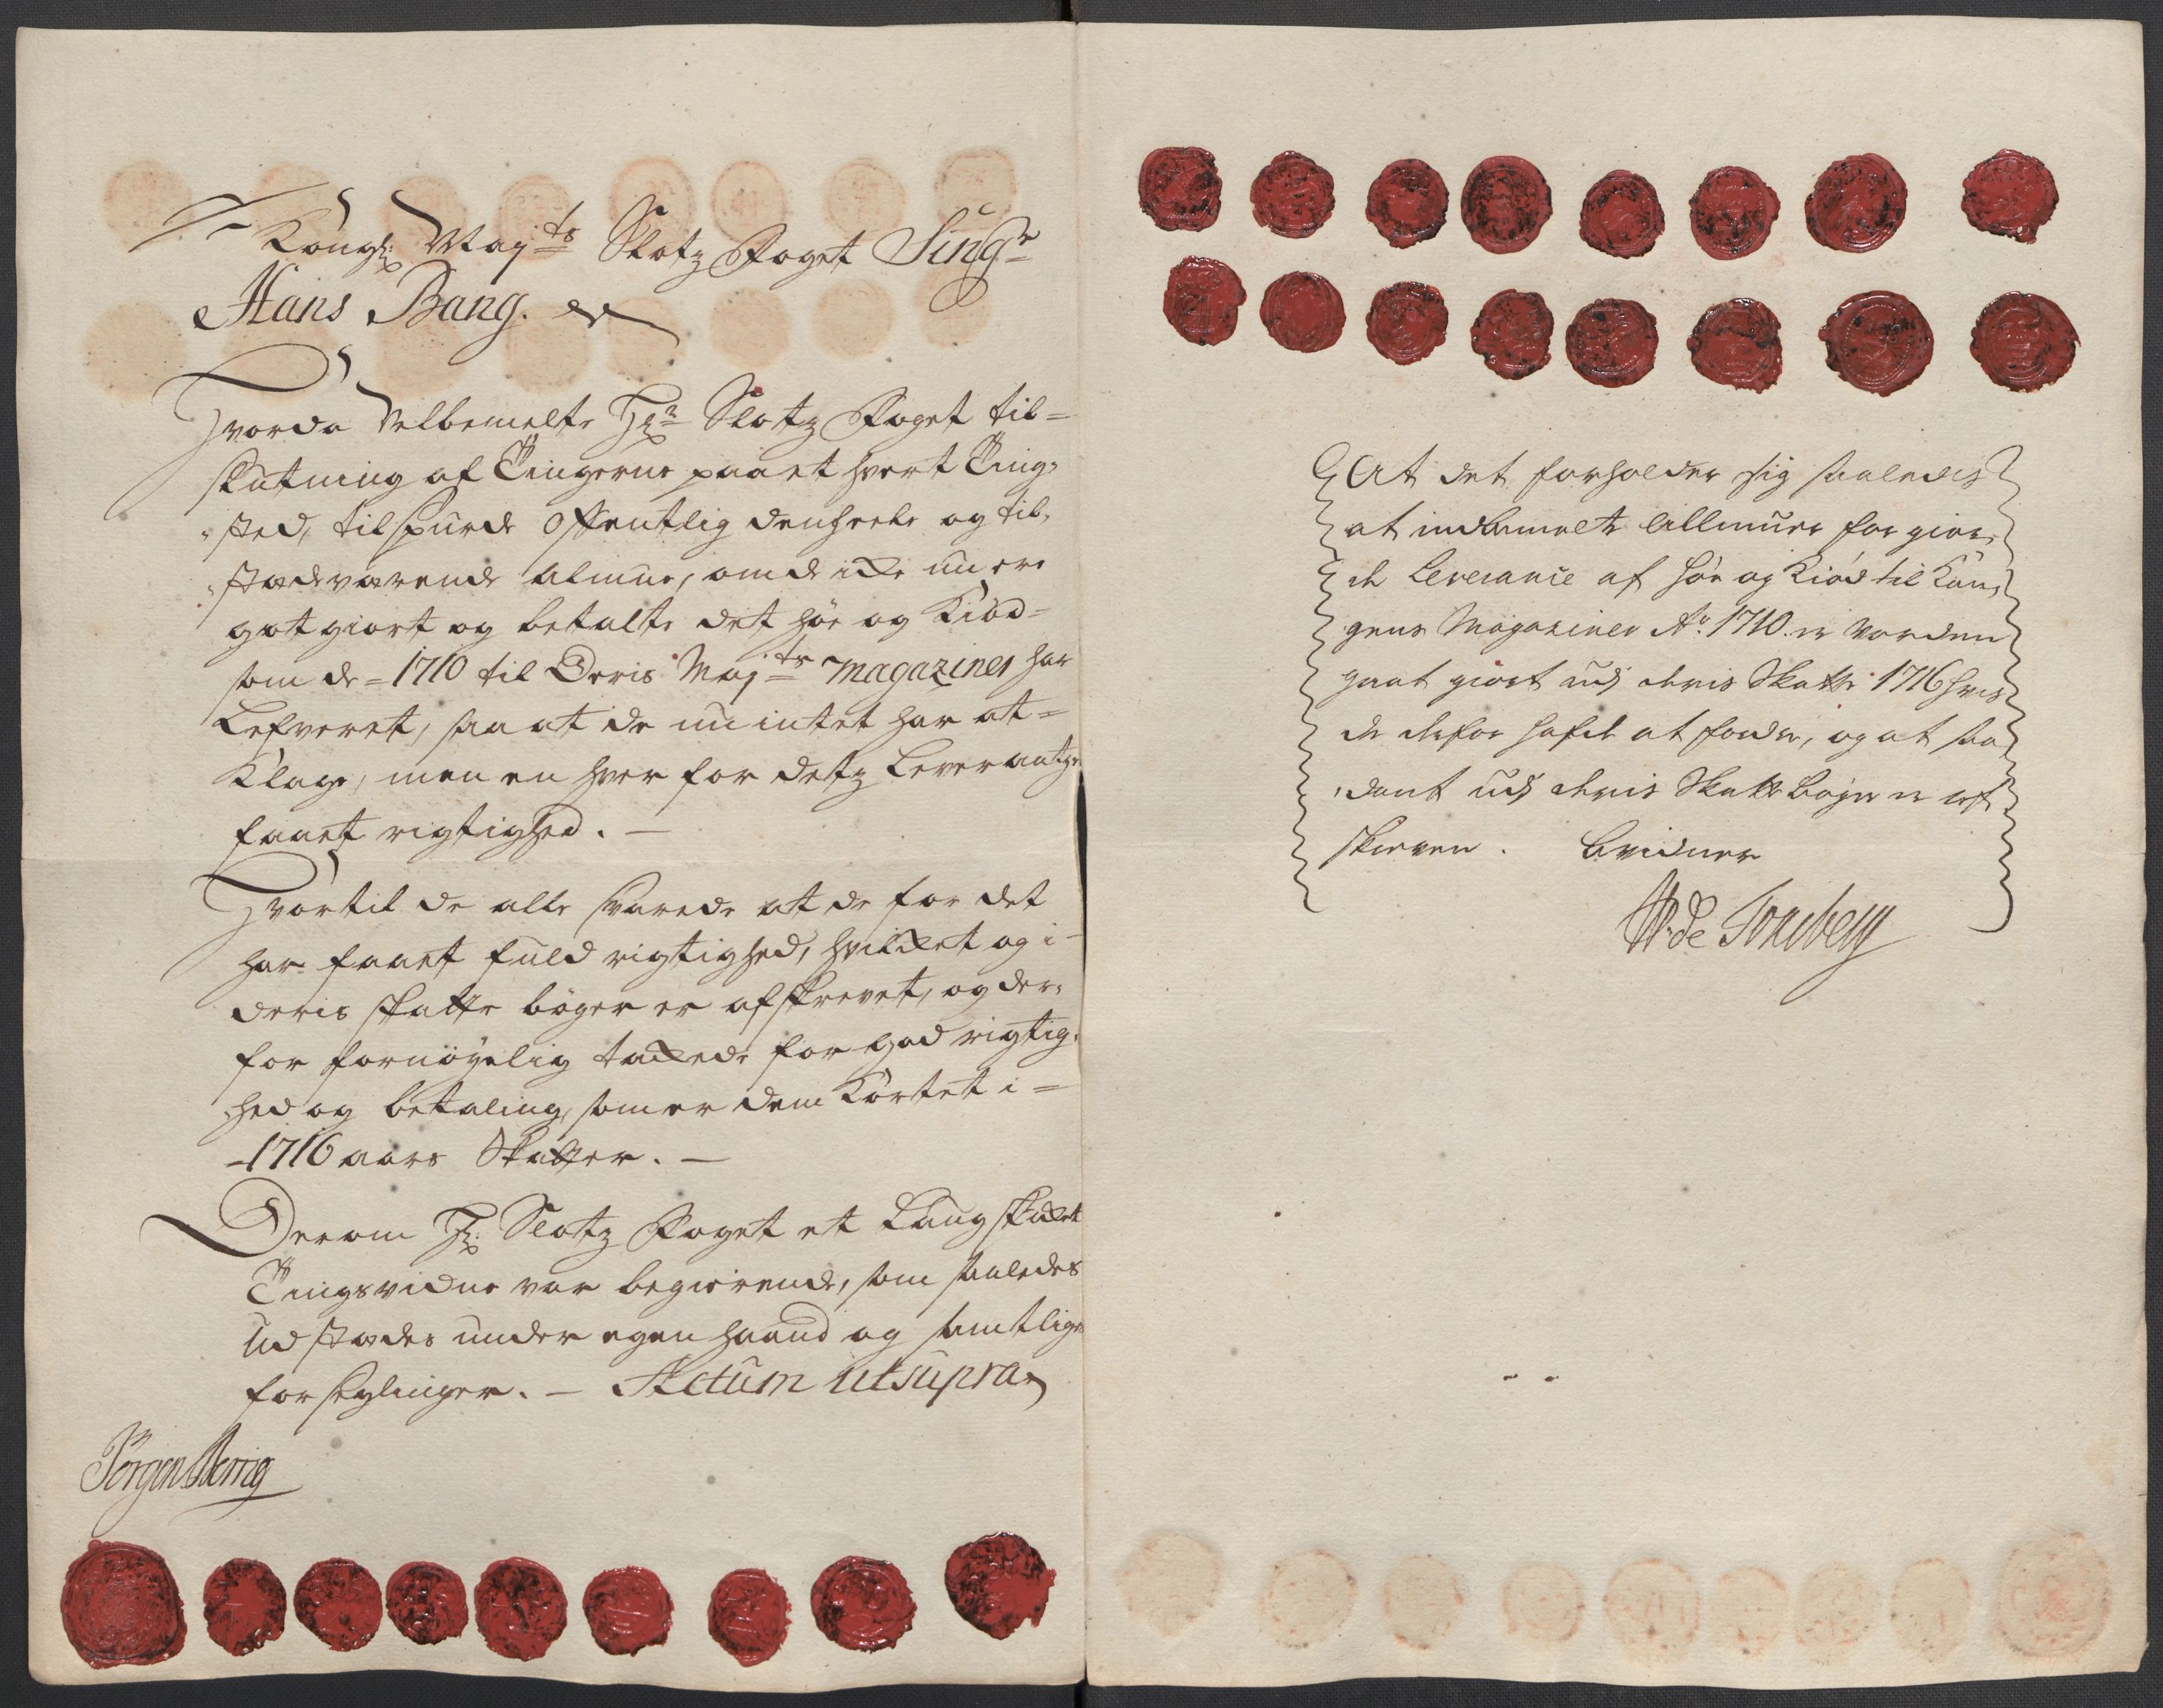 Kongl: Maj:ts Slotz Foget Sing:r
Hans Bang.
Hvorda Velbemelte Hr: Slotz Foget til-
slutning af Tingerne paa et hvert Ting-
sted, tilspurde Offentlig den heele og til-
stædeværende almue, om de icke nu ere
got giort og betalte det høe og Kiød
som de - 1710 til Deris Maj:ts Magaziner har
Lefveret, saa at de nu intet har at
Klage, men en hver for detz Leverantze
faaet rigtighed. -
Hvortil de alle svarede at de for det
har faaet fuld rigtighed, hvilcket og i
deris skatte bøger er afskrevet, og der-
for fornøyelig tackede for god rigtig-
hed og betaling, som er dem Kortet i
- 1716 aars Skatter. -
Derom Hr: Slotz Foget et Laugskicket
Tingsvidne var begierende, som saaledes
Udstædes under egen haand og samtlige
forseglinger. - Actum ut supra
Jörgen
At det forholder sig saaledes
at indbemelte Allmues for gior-
de Leverance af høe og Kiød til Kon-
gens Magaziner Ao: 1710 er vorden
gaat giort udj deris Skatter 1716 hves
de derfor hafde at fordre, og at saa-
dant udj deris Skatte bøger er af-
skreven. Bevidner
de Tonsberg